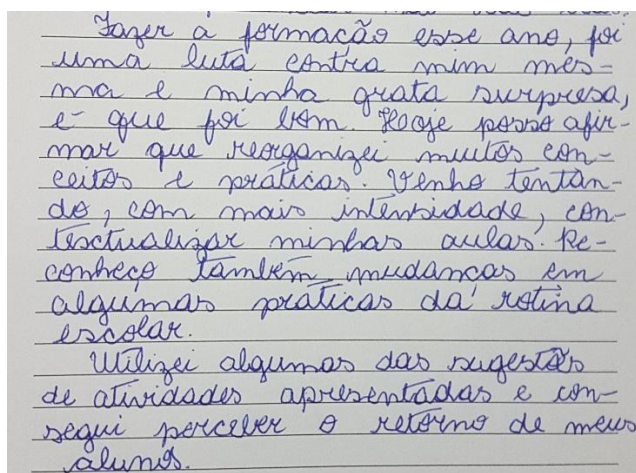 Fazer a formação esse ano, foi
uma luta contra mim mes-
ma e minha grata surpresa,
é que foi bom. Hoje posso afir-
mar que reorganizei muitos con-
ceitos e práticas. Venho tentan-
do, com mais intensidade, con-
textualizar minhas aulas. Re-
conheço também mudanças em
algumas práticas da rotina
escolar.
Utilizei algumas das sugestões
de atividades apresentadas e con-
segui perceber o retorno de meus
alunos.